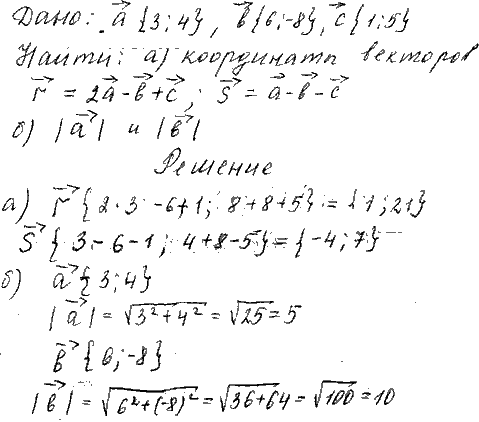 Дано: a⃗ {3; 4}, b⃗ {6; -8}, c⃗ {1; 5}
Найти: а) координаты векторов
r⃗ = 2a⃗ - b⃗ + c⃗; s⃗ = a⃗ - b⃗ - c⃗
б) |a⃗| и |b⃗|
Решение
а) r⃗ {2·3 - 6 + 1; 8 + 8 + 5} = {1; 21}
s⃗ {3 - 6 - 1; 4 + 8 - 5} = {-4; 7}
б) a⃗ {3; 4}
|a⃗| = √3² + 4² = √25 = 5
b⃗ {6; -8}
|b⃗| = √6² + (-8)² = √36 + 64 = √100 = 10